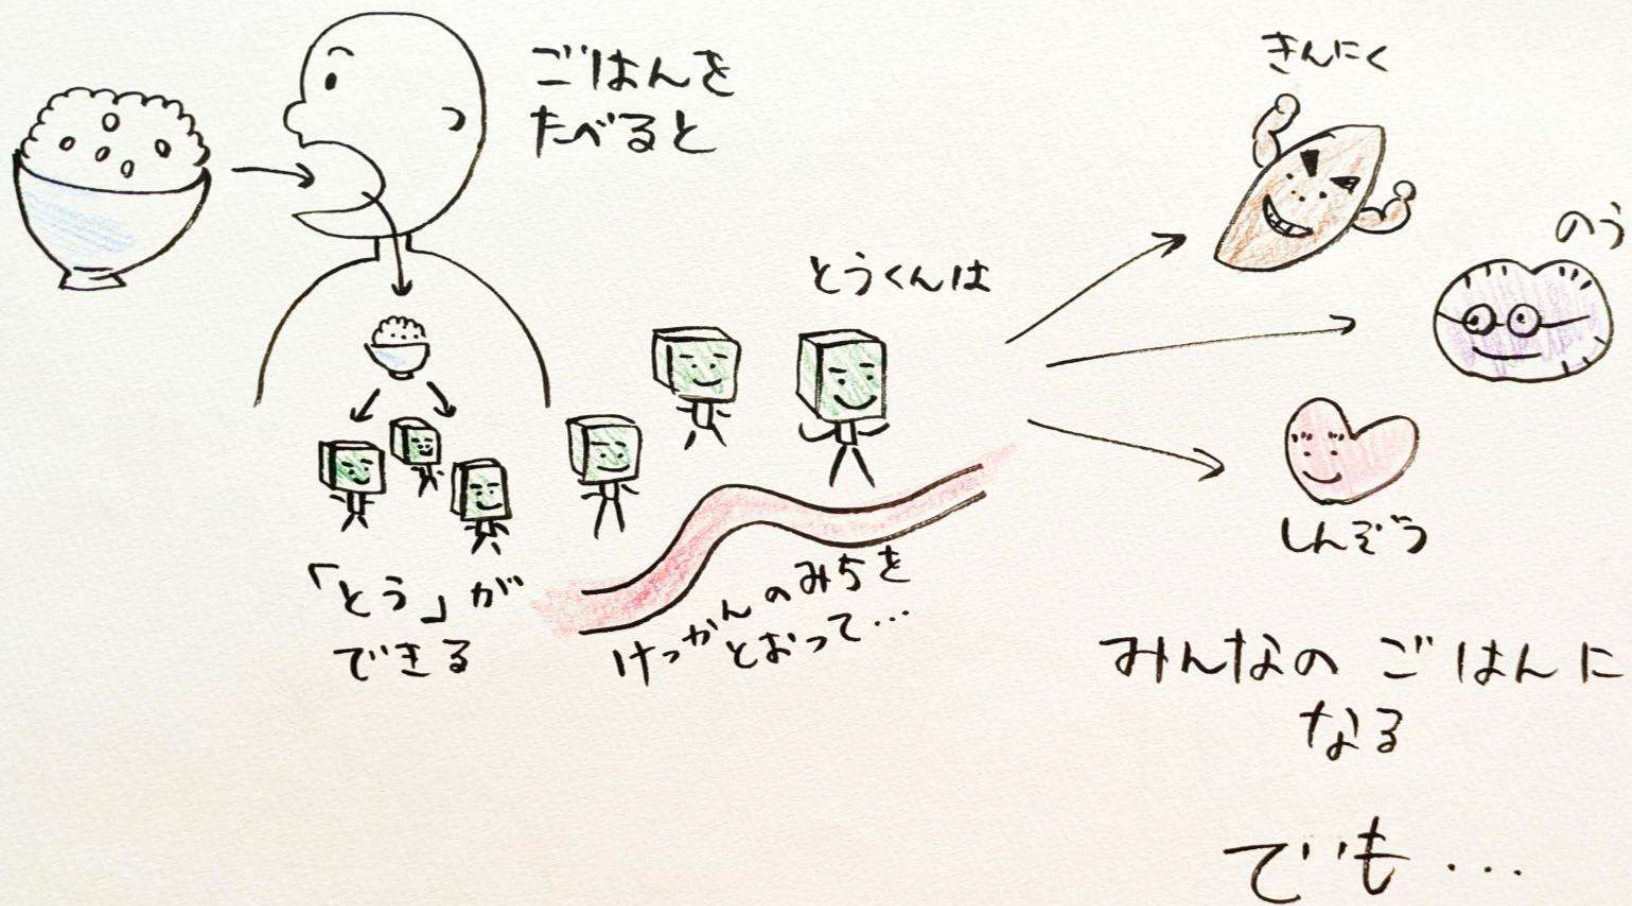 ごはんを
たべると
「とう」が
できる
けっかんのみちを
とおって…
とうくんは
きんにく
のう
しんぞう
みんなの ごはんに
なる
でも…